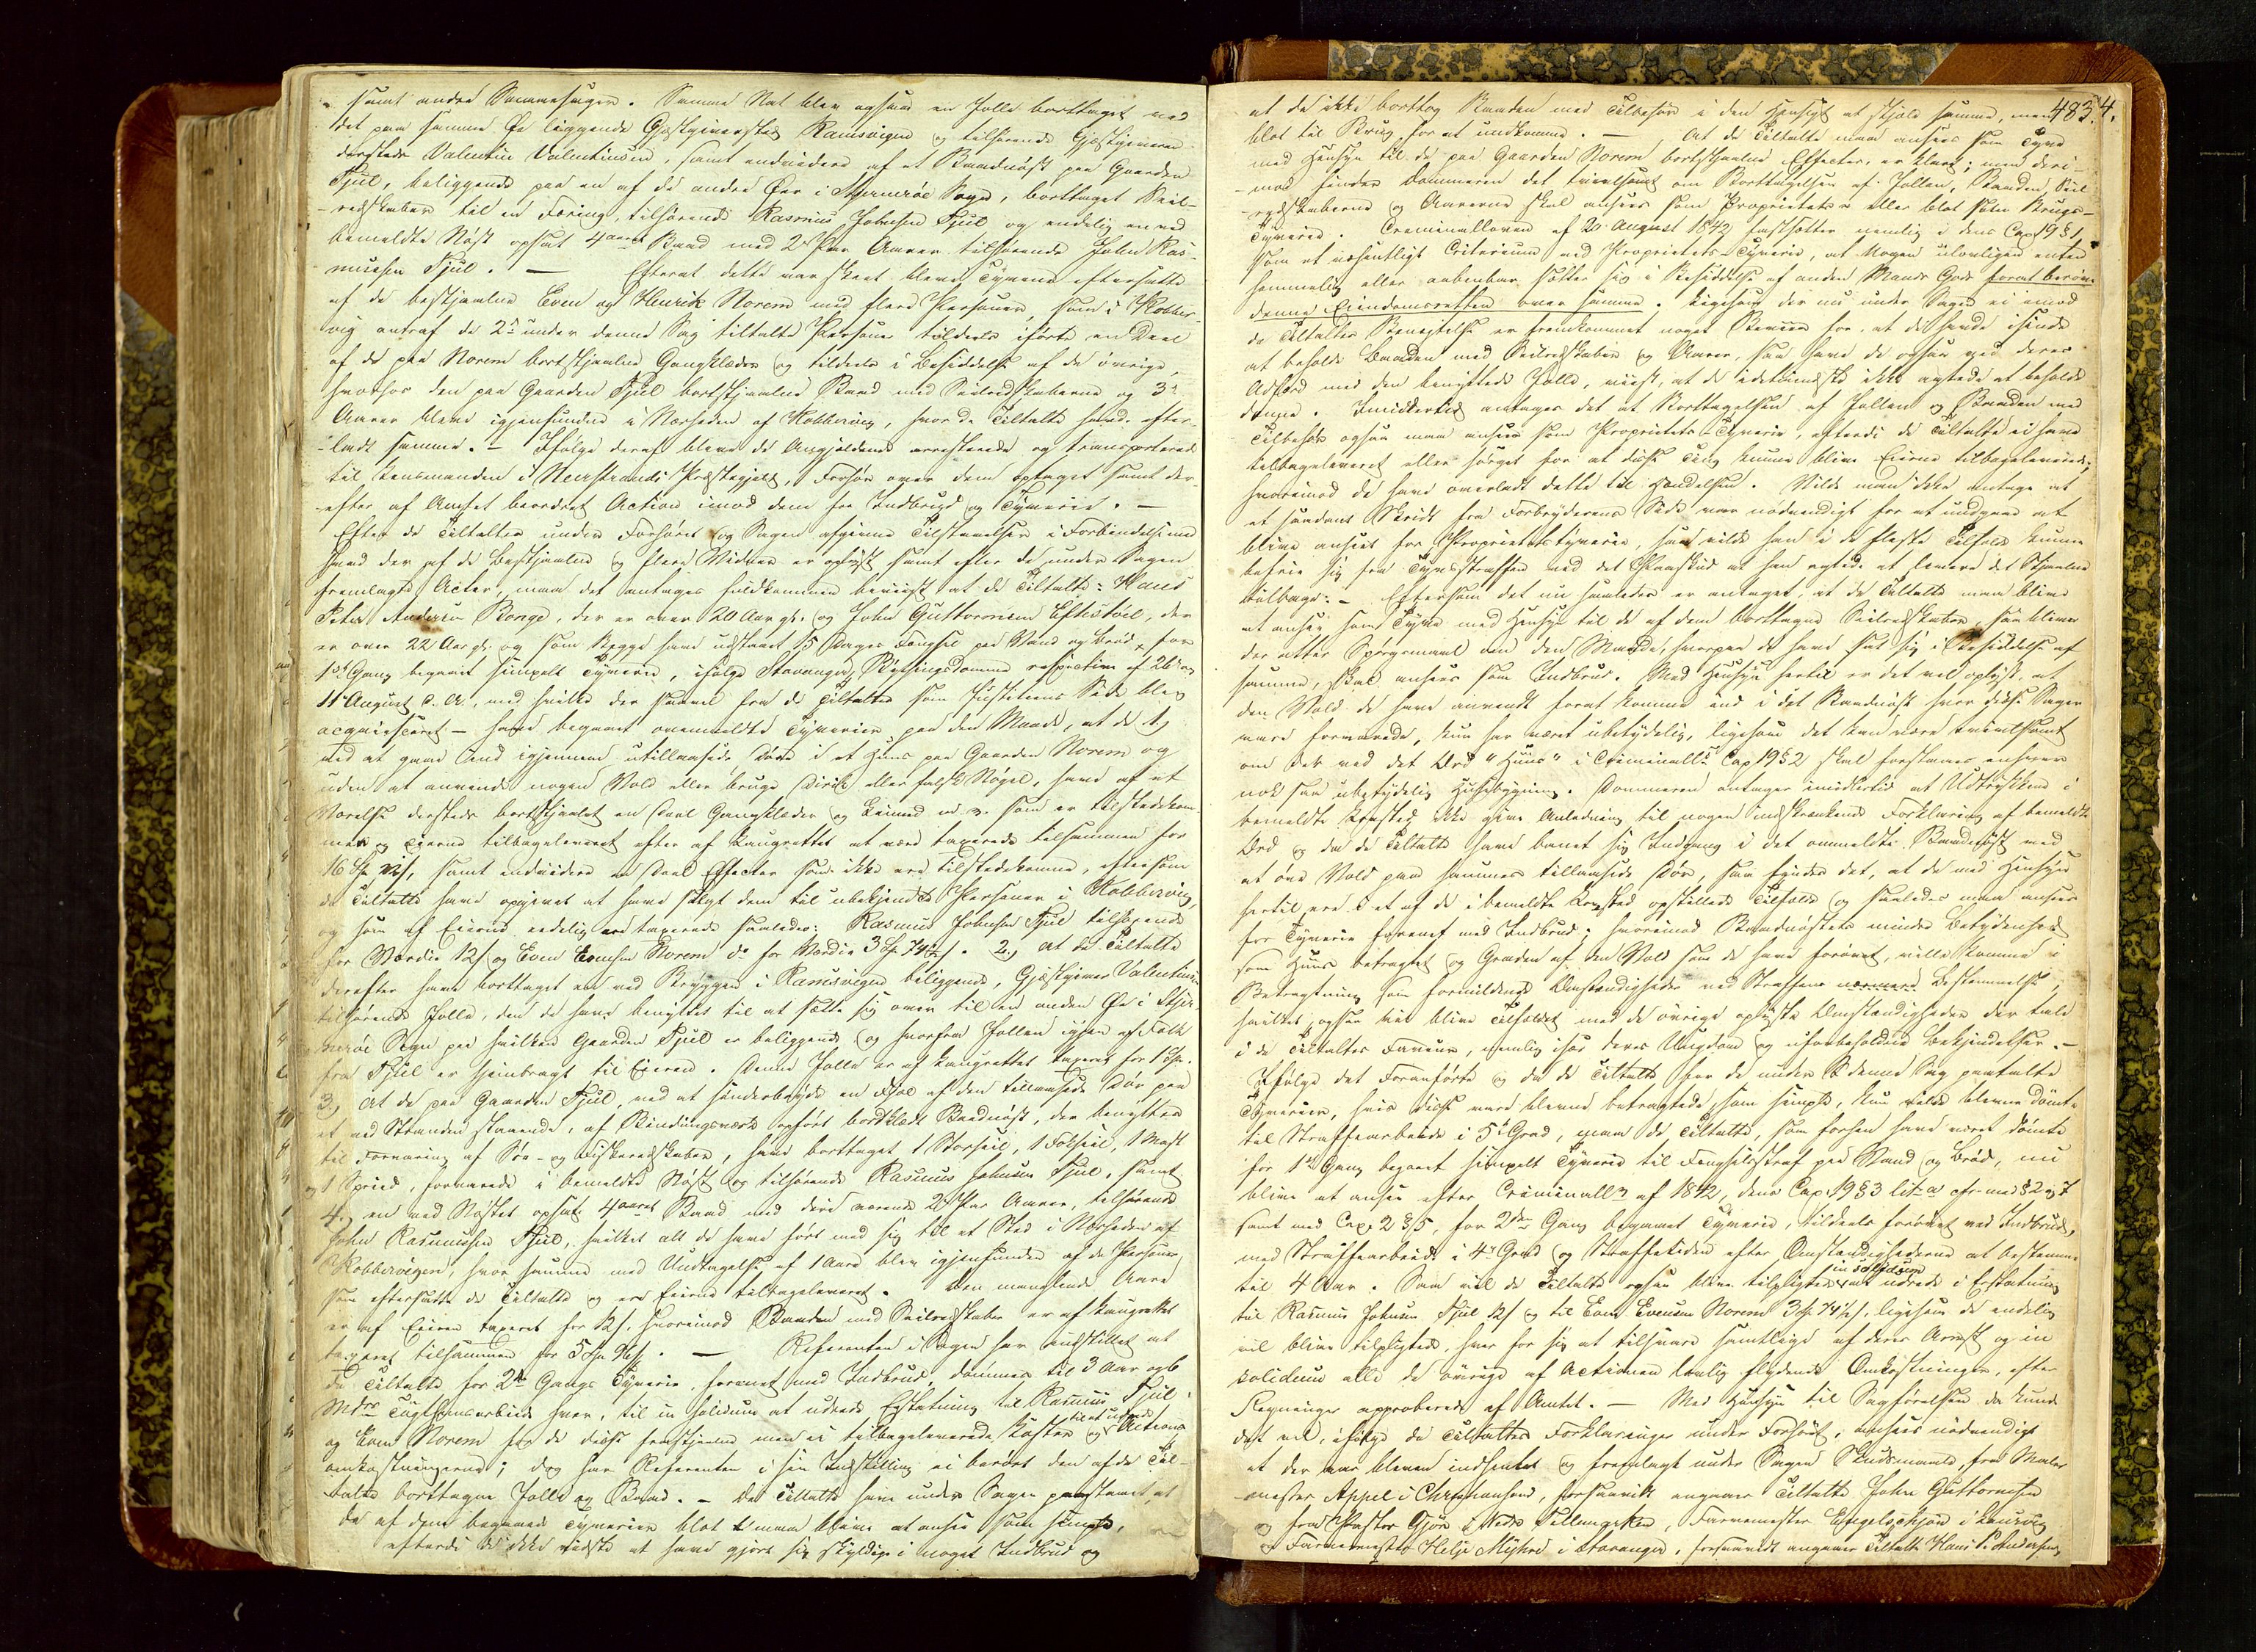 samt andre Smaasager. Samme Nat blev ogsaa en Jolle borttaget ved
det paa samme Øe liggende Gjæstgiversted Ramsvigen og tilhørende Gjæstgiveren
dersteds Valentin Valentinsen, samt endvidere af et Baadnøst paa Gaarden
Tjul, beliggende paa en af de andre Øer i Stjernerøe Sogn, borttaget Seil-
redskaber til en Færing, tilhørende Rasmus Johnsen Tjul og endelig en ved
bemeldte Nøst opsat 4aaret Baad med 2de Par Aarer tilhørende John Ras-
mussen Tjul. — Efterat dette var skeet bleve Tyvene eftersatte
af de bestjaalne Even og Henrik Norem med flere Personer, som i Kobber-
vig antraf de 2de under denne Sag tiltalte Personer tildeels iførte en Deel
af de paa Norem bortstjaalne Gangklæder og tildeels i Besiddelse af de øvrige,
hvorhos den paa Gaarden Tjul bortstjaalne Baad med Seilredskaberne og 3de
Aarer bleve igjenfundne i Nærheden af Kobbervig, hvor de Tiltalte havde efter-
ladt samme. — Ifølge deraf bleve de Angjældende arresterede og transporterede
til Lensmanden i Neerstrands Præstegjeld, Forhør over dem optaget samt der-
efter af Amtet beordret Action imod dem for Indbrud og Tyverie. —
Efter de Tiltaltes under Forhøret og Sagen afgivne Tilstaaelser i Forbindelse med
hvad der af de Bestjaalne og flere Vidner er oplyst samt efter de under Sagen
fremlagte Acter, maa det antages fuldkommen beviist at de Tiltalte: Hans
Peter Andersen Bonge, der er over 20 Aar gl. og John Guttormsen Eftestøel, der
er over 22 Aar gl. og som begge have udstaaet 15 Dages Fængsel paa Vand og Brød, for
1ste Gang begaaet simpelt Tyverie, ifølge Stavanger Bythingsdomme respective af 26 og
11te August d. A., med hvilke der saavel fra de Tiltaltes som Justitiens Side blev
acquiesceret — have begaaet ovenmeldte Tyverier paa den Maade, at de 1,
ved at gaae ind igjennem utillaasede Døre i et Huus paa Gaarden Norem og
uden at anvende nogen Vold eller bruge Dirik eller falsk Nøgel, have af et
Værelse dersteds bortstjaalet en Deel Gangklæder og Linned m. m. som er tilstedekom-
men og Eierne tilbageleveret efter af Laugrettet at være taxerede tilsammen for
16 Spd, samt endvidere en Deel Effecter som ikke ere tilstedekomne, eftersom
de Tiltalte have opgivet at have solgt dem til ubekjendte Personer i Kobbervig,
og som af Eierne eedelig ere taxerede saaledes: Rasmus Johnsen Tjul tilhørende
for Værdie 12 s og Even Evensen Norem do for Værdie 3 Spd 74½ s. 2, at de Tiltalte
derefter have borttaget en ved Bryggen i Ramsvigen beliggende, Gjæstgiver Valentinsen
tilhørende Jolle, den de have benyttet til at sætte sig over til en anden Øe i Stjer-
nerøe Sogn paa hvilken Gaarden Tjul er beliggende og hvorfra Jollen igjen af Folk
fra Tjul er hjembragt til Eieren. Denne Jolle er af Laugrettet taxeret for 1 Spd.
3, At de paa Gaarden Tjul, ved at sønderbryde en Fjæl af den tillaasede Dør paa
et ved Stranden staaende, af Bindingsværk opført bordklædt Baadnøst, der benyttes
til Forvaring af Søe- og Fiskeredskaber, have borttaget 1 Storseil, 1 Foksseil, 1 Mast
og 1 Spried, forvarede i bemeldte Nøst og tilhørende Rasmus Johnsen Tjul, samt
4, en ved Nøstet opsat 4aaret Baad med deri værende 2de Par Aarer, tilhørende
John Rasmussen Tjul, hvilket alt de have ført med sig til et Sted i Nærheden af
Kobbervigen, hvor samme med Undtagelse af 1 Aare blev igjenfunden af de Personer
som eftersatte de Tiltalte og er Eierne tilbageleveret. Den manglende Aare
er af Eieren taxeret for 12 s, hvorimod Baaden med Seilredskaber er af Laugrettet
taxeret tilsammen for 5 Spd. — Referenten i Sagen har indstillet at
de Tiltalte for 2den Gangs Tyverie, forenet med Indbrud, dømmes til 3 Aar og 6
Mdrs Tugthuusarbeide hver, til in solidum at udrede Erstatning til Rasmus Tjul
og Even Norem for de disse frastjaalne men ei tilbageleverede Koster og til at udrede Actions
omkostningerne; dog har Referenten i sin Indstilling ei berørt den af de Til-
talte borttagne Jolle og Baad. — De Tiltalte have under Sagen paastaaet, at
de af dem begaaede Tyverier blot maa blive at ansee som simple,
efterdi de ikke vidste at have gjort sig skyldige i noget Indbrud og
483. 4.
at de ikke borttog Baaden med Tilbehør i den Hensigt at stjæle samme, men
blot til Brug for at undkomme. — At de Tiltalte maa ansees som Tyve
med Hensyn til de paa Gaarden Norem bortstjaalne Effecter, er klart; men deri-
mod finder Dommeren det tvivlsomt om Borttagelsen af Jollen, Baaden, Seil-
redskaberne og Aarerne skal ansees som Proprietets- eller blot som Brugs-
Tyverie. Criminalloven af 20 August 1842 fastsætter nemlig i dens Cap 19 § 1,
som et væsentligt Criterium ved Proprietets-Tyverie, at Nogen ulovligen enten
hemmelig eller aabenbar sætter sig i Besiddelse af anden Mands Gods forat berøve
denne Eiendomsretten over samme. Ligesom der nu under Sagen ei imod
de Tiltaltes Benegtelse er fremkommet noget Beviis for, at de havde isinde
at beholde Baaden med Seilredskaber og Aarer, saa have de ogsaa ved deres
Adfærd med den benyttede Jolle, viist, at de idetmindste ikke agtede at beholde
denne. Imidlertid antages det at Borttagelsen af Jollen og Baaden med
Tilbehør ogsaa maa ansees som Proprietets-Tyverie, efterdi de Tiltalte ei have
tilbageleveret eller sørget for at disse Ting kunne blive Eierne tilbageleverede,
hvorimod de have overladt dette til Hændelsen. Vilde man ikke antage at
et saadant Skridt fra Forbryderens Side var nødvendigt for at undgaae at
blive anseet for Proprietetstyverie, saa vilde han i de fleste Tilfælde kunne
befrie sig fra Tyvsstraffen ved det Paaskud at han agtede at levere det Stjaalne
tilbage. — Eftersom det nu saaledes er antaget, at de Tiltalte maa blive
at ansee som Tyve med Hensyn til de af dem borttagne Seilredskaber, saa bliver
der atter Spørgsmaal om den Maade, hvorpaa de have sat sig i Besiddelse af
samme, skal ansees som Indbrud. Med Hensyn hertil er det vel oplyst, at
den Vold de have anvendt forat komme ind i det Baadnøst hvor disse Sager
vare forvarede, kun har været ubetydelig, ligesom det kan være tvivlsomt
om der ved det Ord "Huus" i Criminall: Cap 19 § 2 skal forstaaes enhver
nok saa ubetydelig Huusbygning. Dommeren antager imidlertid at Udtrykkene i
bemeldte Lovsted ikke give Anledning til nogen indskrænkende Forklaring af bemeldte
Ord og da de Tiltalte have banet sig Indgang i det ommeldte Baadenøst ved
at øve Vold paa sammes tillaasede Dør, saa synes det, at de med Hensyn
hertil ere i et af de i bemeldte Lovsted opstillede Tilfælde og saaledes maa ansees
for Tyverie forenet med Indbrud; hvorimod Baadnøstets mindre Betydenhed
som Huus betragtet og Graden af den Vold som de have forøvet, ville komme i
Betragtning som formildende Omstændigheder ved Straffens nærmere Bestemmelse,
hvilket ogsaa vil blive Tilfældet med de øvrige oplyste Omstændigheder der tale
i de Tiltaltes Faveur, nemlig især deres Ungdom og uforbeholdne Bekjendelser. —
Ifølge det Foranførte og da de Tiltalte for de under denne Sag paatalte
Tyverier, hvis disse vare blevne betragtede som simple, kun vilde blevne dømte
til Straffearbeide i 5te Grad, maa de Tiltalte, som forhen have været dømte
for 1ste Gang begaaet simpelt Tyverie til Fængselsstraf paa Vand og Brød, nu
blive at ansee efter Criminallv af 1842, dens Cap. 19 § 3 lit. a cfr. med § 2 og 7
samt med Cap. 2 § 5, for 2den Gang begaaet Tyverie, tildeels forøvet ved Indbrud,
med Straffearbeide i 4de Grad og Straffetiden efter Omstændighederne at bestemme
til 4 Aar. Saa vil de Tiltalte ogsaa blive tilpligtede in solidum at udrede i Erstatning
til Rasmus Johnsen Tjul 12 s og til Even Evensen Norem 3 Spd 74½ s, ligesom de endelig
vil blive tilpligtede, hver for sig at tilsvare Samtlige af deres Arrest og in
solidum alle de øvrige af Actionen lovlig flydende Omkostninger, efter
Regninger approberede af Amtet. — Med Hensyn til Sagførelsen da kunde
det vel, ifølge de Tiltaltes Forklaringer under Forhøret, ansees nødvendigt
at der var bleven indhentet og fremlagt under Sagen Skudsmaal, fra Maler
mester Appel i Christiansand, forsaavidt angaaer Tiltalte John Guttormsen
og fra Pastor Gjør i Nedre Tellemarken, Farvemester Engelschjøn i Laurvig
og Farvemester Helje Myhre i Stavanger, forsaavidt angaaer Tiltalte Hans P. Andersen,